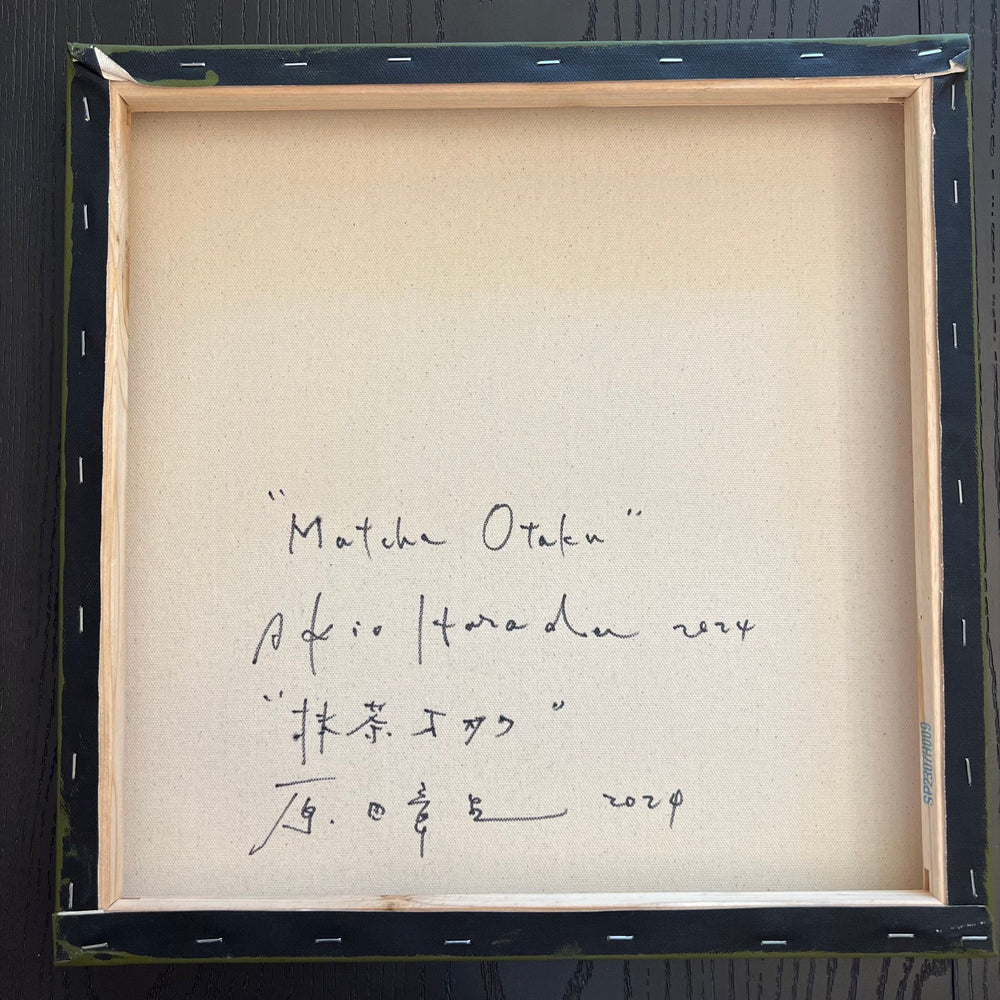 "Matcha Otaku"
Akio Harada 2024
"抹茶オタク"
原田章生 2024
SP2307H009